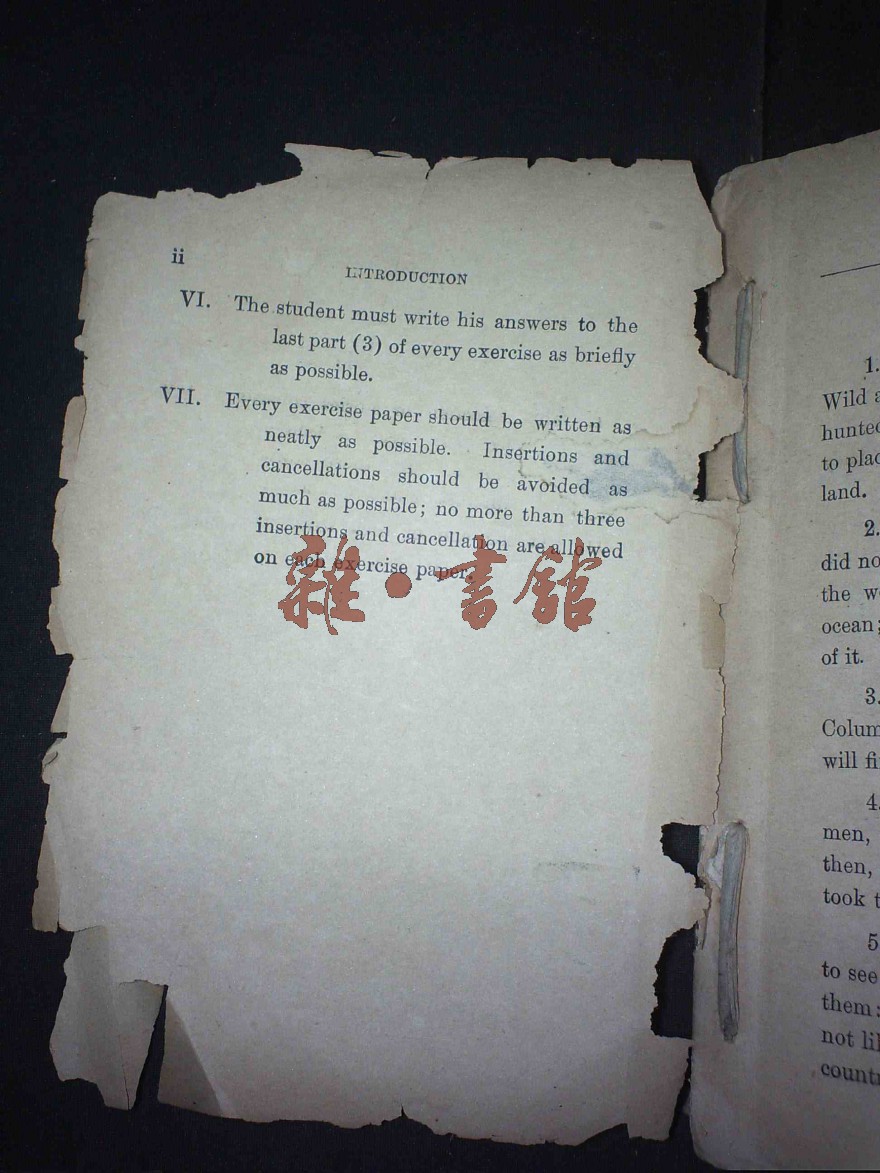 ii
INTRODUCTION
VI. The student must write his answers to the
last part (3) of every exercise as briefly
as possible.
VII. Every exercise paper should be written as
neatly as possible. Insertions and
cancellations should be avoided as
much as possible; no more than three
insertions and cancellation are allowed
on each exercise paper.
雜·書館
1.
Wild
hunted
to
land.
2.
did
the
ocean;
of it.
3.
will
4.
men,
then,
took
5
to see
them:
not